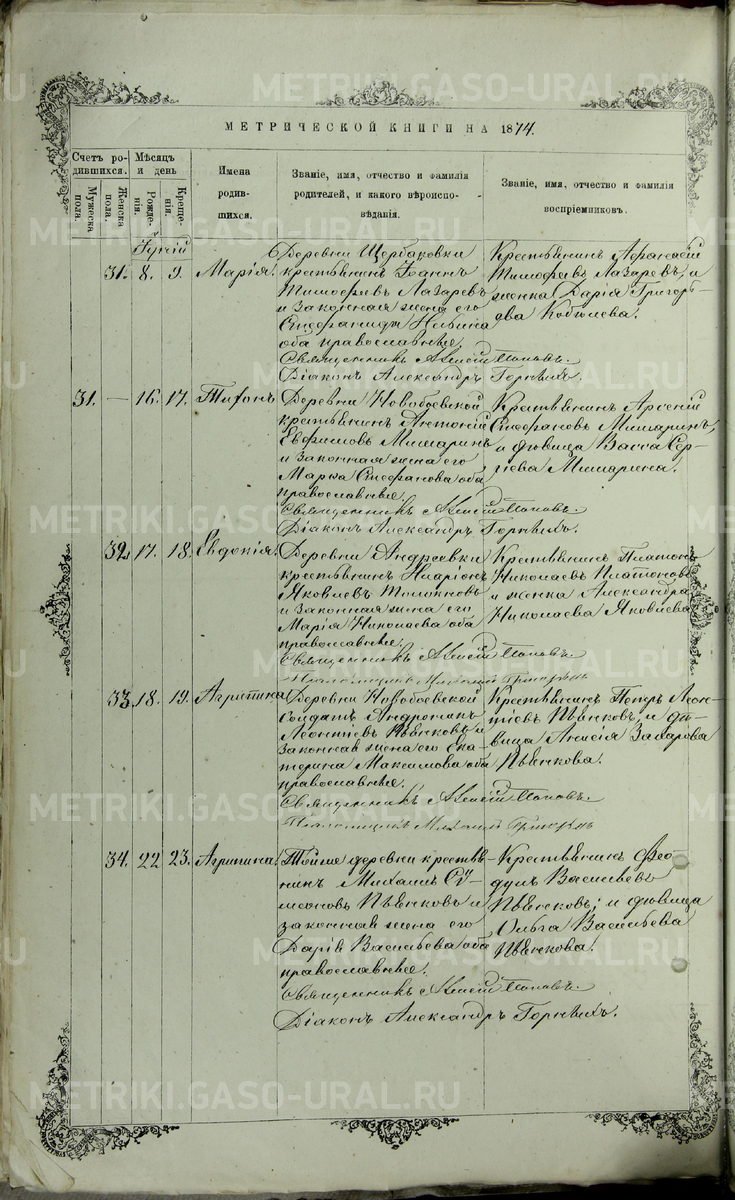 МЕТРИЧЕСКОЙ КНИГИ НА 1874.
Счетъ ро-
дившихся.
Мужеска
пола.
Женска
пола.
Мѣсяцъ
и день
Рожде-
нія.
Креще-
нія.
Имена
родив-
шихся.
Званіе, имя, отчество и фамилія
родителей, и какого вѣроиспо-
вѣданія.
Званіе, имя, отчество и фамилія
воспріемниковъ.
Іуній
31. 8. 9. Марія.
Деревни Щербаковки
крестьянинъ Іоаннъ
Тимофѣевъ Лазаревъ
и законная жена его
Стефанида
оба православные.
Священникъ Алексій Поповъ.
Діаконъ Александръ Горныхъ.
Крестьянинъ Афанасій
Тимофѣевъ Лазаревъ, и
женка Дарія Григорь-
ева Кобылева.
31. — 16. 17. Тихонъ
Деревни Новобоевской
крестьянинъ Антоній
Евфимовъ Мишаринъ
и законная жена его
Марѳа Стефанова оба
православные.
Священникъ Алексій Поповъ.
Діаконъ Александръ Горныхъ.
Крестьянинъ Арсеній
Стефановъ Мишаринъ,
и дѣвица Васса Сер-
гіева Мишарина.
32. 17. 18. Евдокія.
Деревни Андреевки
крестьянинъ Иларіонъ
Яковлевъ
и законная жена его
Марія Николаева оба
православные.
Священникъ Алексій Поповъ.
Крестьянинъ Платонъ
Николаевъ Платоновъ
и женка Александра
Николаева Яковлева
33. 18. 19. Агрипина
Деревни Новобоевской
солдатъ Андроникъ
Леонтіевъ Пьянковъ и
законная жена его Ека-
терина Максимова оба
православные.
Священникъ Алексій Поповъ.
Крестьянинъ Петръ Леон-
тіевъ Пьянковъ, и дѣ-
вица Анисія Захарова
Пьянкова.
34. 22 23. Агрипина.
Тойже деревни крестья-
нинъ Михаилъ Си-
меоновъ Пьянковъ и
законная жена его
Дарія Васильева оба
православные.
Священникъ Алексій Поповъ.
Діаконъ Александръ Горныхъ.
Крестьянинъ Ѳео-
дулъ Васильевъ
Пьянковъ; и дѣвица
Ольга Васильева
Пьянкова.
METRIKI.GASO-URAL.RU